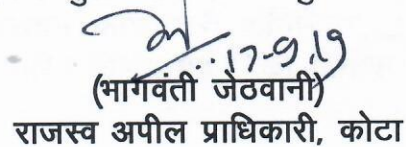 17-9.19
(भागवंती जेठवानी)
राजस्व अपील प्राधिकारी, कोटा